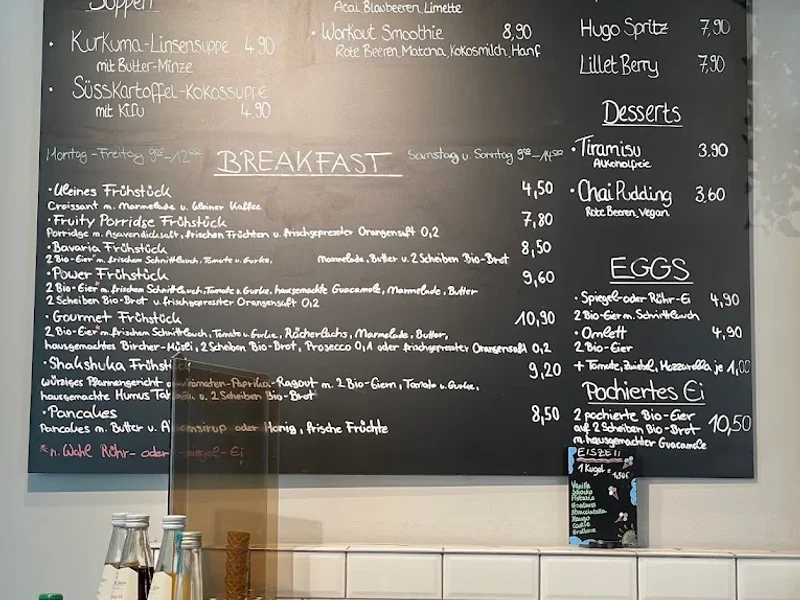 Suppen
Kurkuma-Linsensuppe 4.90
mit Butter-Minze
Süsskartoffel-Kokossuppe
mit Kifu 4.90
Acai Blaubeeren, Limette
Workout Smoothie 8,90
Rote Beeren, Matcha, Kokosmilch, Hanf
Hugo Spritz 7,90
Lillet Berry 7,90
Desserts
Tiramisu 3.90
Alkoholfreie
Chai Pudding 3,60
Rote Beeren, Vegan
Montag-Freitag 9:00-12:00
BREAKFAST
Samstag u. Sonntag 9:00-14:00
Kleines Frühstück 4,50
Croissant m. Marmelade u. kleiner Kaffee
Fruity Porridge Frühstück 7,80
Porridge m. Agavendicksaft, frischen Früchten u. frischgepresster Orangensaft 0,2
Bavaria Frühstück 8,50
2 Bio-Eier* m. frischem Schnittlauch, Tomate u. Gurke, Marmelade, Butter u. 2 Scheiben Bio-Brot
Power Frühstück 9,60
2 Bio-Eier* m. frischem Schnittlauch, Tomate u. Gurke, hausgemachte Guacamole, Marmelade, Butter
2 Scheiben Bio-Brot u. frischgepresster Orangensaft 0,2
Gourmet Frühstück 10,90
2 Bio-Eier* m. frischem Schnittlauch, Tomate u. Gurke, Räucherlachs, Marmelade, Butter,
hausgemachtes Bircher-Müsli, 2 Scheiben Bio-Brot, Prosecco 0,1 oder frischgepresster Orangensaft 0,2
Shakshuka Frühstück 9,20
würziges Pfannengericht Tomaten-Paprika-Ragout m. 2 Bio-Eiern, Tomate u. Gurke,
hausgemachte Humus u. 2 Scheiben Bio-Brot
Pancakes 8,50
Pancakes m. Butter u. oder Honig, frische Früchte
*n. Wahl Rühr- oder Spiegel-Ei
EGGS
Spiegel- oder Rühr-Ei 4,90
2 Bio-Eier m. Schnittlauch
Omlett 4,90
2 Bio-Eier
+ Tomate, Zwiebel, Mozzarella je 1,00
Pochiertes Ei
2 pochierte Bio-Eier
auf 2 Scheiben Bio-Brot 10,50
m. hausgemachter Guacamole
EISZEIT
1 Kugel = 1,50€
Vanille
Schoko
Pistazie
Stracciatella
Mango
Cookie
Erdbeere